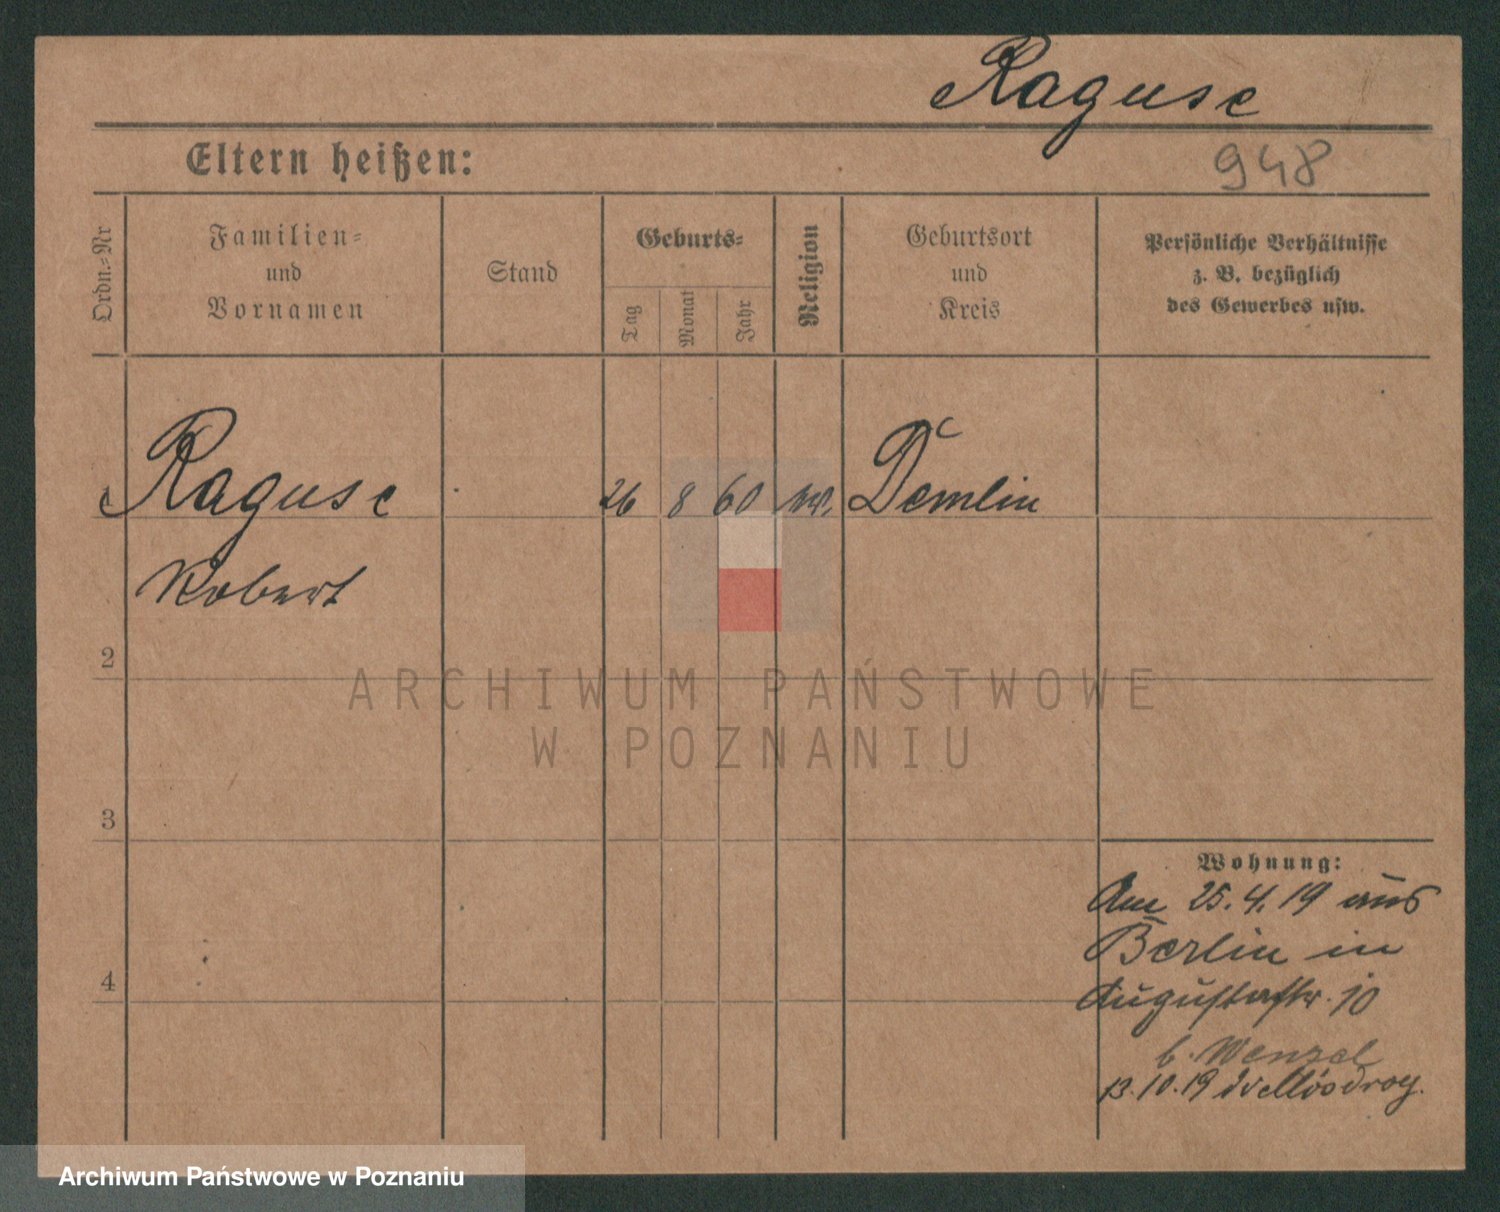 Raguse
Eltern heißen:
948
Ordn.=Nr
Familien=
und
Vornamen
Stand
Geburts=
Tag
Monat
Jahr
Religion
Geburtsort
und
Kreis
Persönliche Verhältnisse
z. B. bezüglich
des Gewerbes usw.
1 Raguse 26 8 60 Demlin
Robert
2
ARCHIWUM PAŃSTWOWE
W POZNANIU
3
Wohnung:
Am 25.4.19 aus
Berlin in
4
Augustastr. 10
b. Wenzel
13.10.19
Archiwum Państwowe w Poznaniu